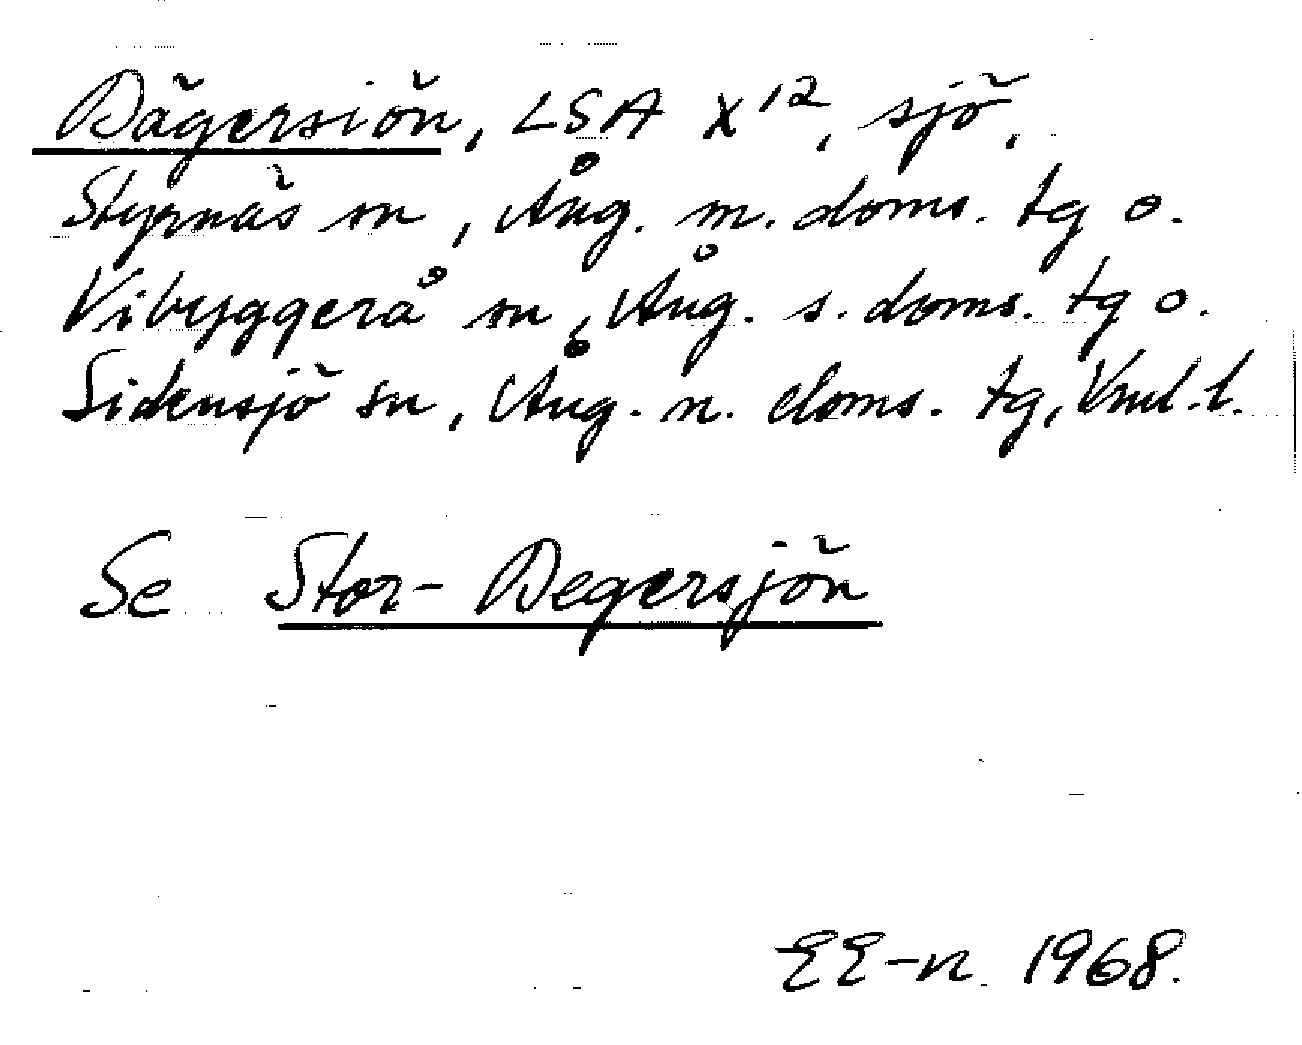 Dägersiön, LSA X12, sjö,
Styrnäs sn, Ång. m. doms. tg o.
Vibyggerå sn, Ång. s. doms. tg o.
Sidensjö sn, Ång. n. doms. tg, Vnl. l.
Se Stor-Degersjön
EE-n 1968.